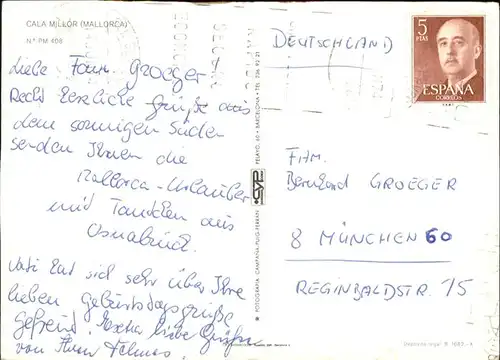 CALA MILLOR (MALLORCA)
N.º PM 408
DEUTSCHLAND
5
PTAS
ESPAÑA
CORREOS
Liebe Fam. Groeger!
Recht herzliche Grüße aus
dem sonnigen Süden
senden Ihnen die
Mallorca-Urlauber
und Tantchen aus
Osnabrück.
Vati hat sich sehr über Ihre
lieben Geburtstagsgrüße
gefreut. Extra liebe Grüße
von Ihren
FAM.
Bernhard GROEGER
8 MÜNCHEN 60
REGINBALDSTR. 15
FOTOGRAFIA: CAMPAÑA-PUIG-FERRAN
PELAYO, 60 • BARCELONA • TEL. 236 92 21